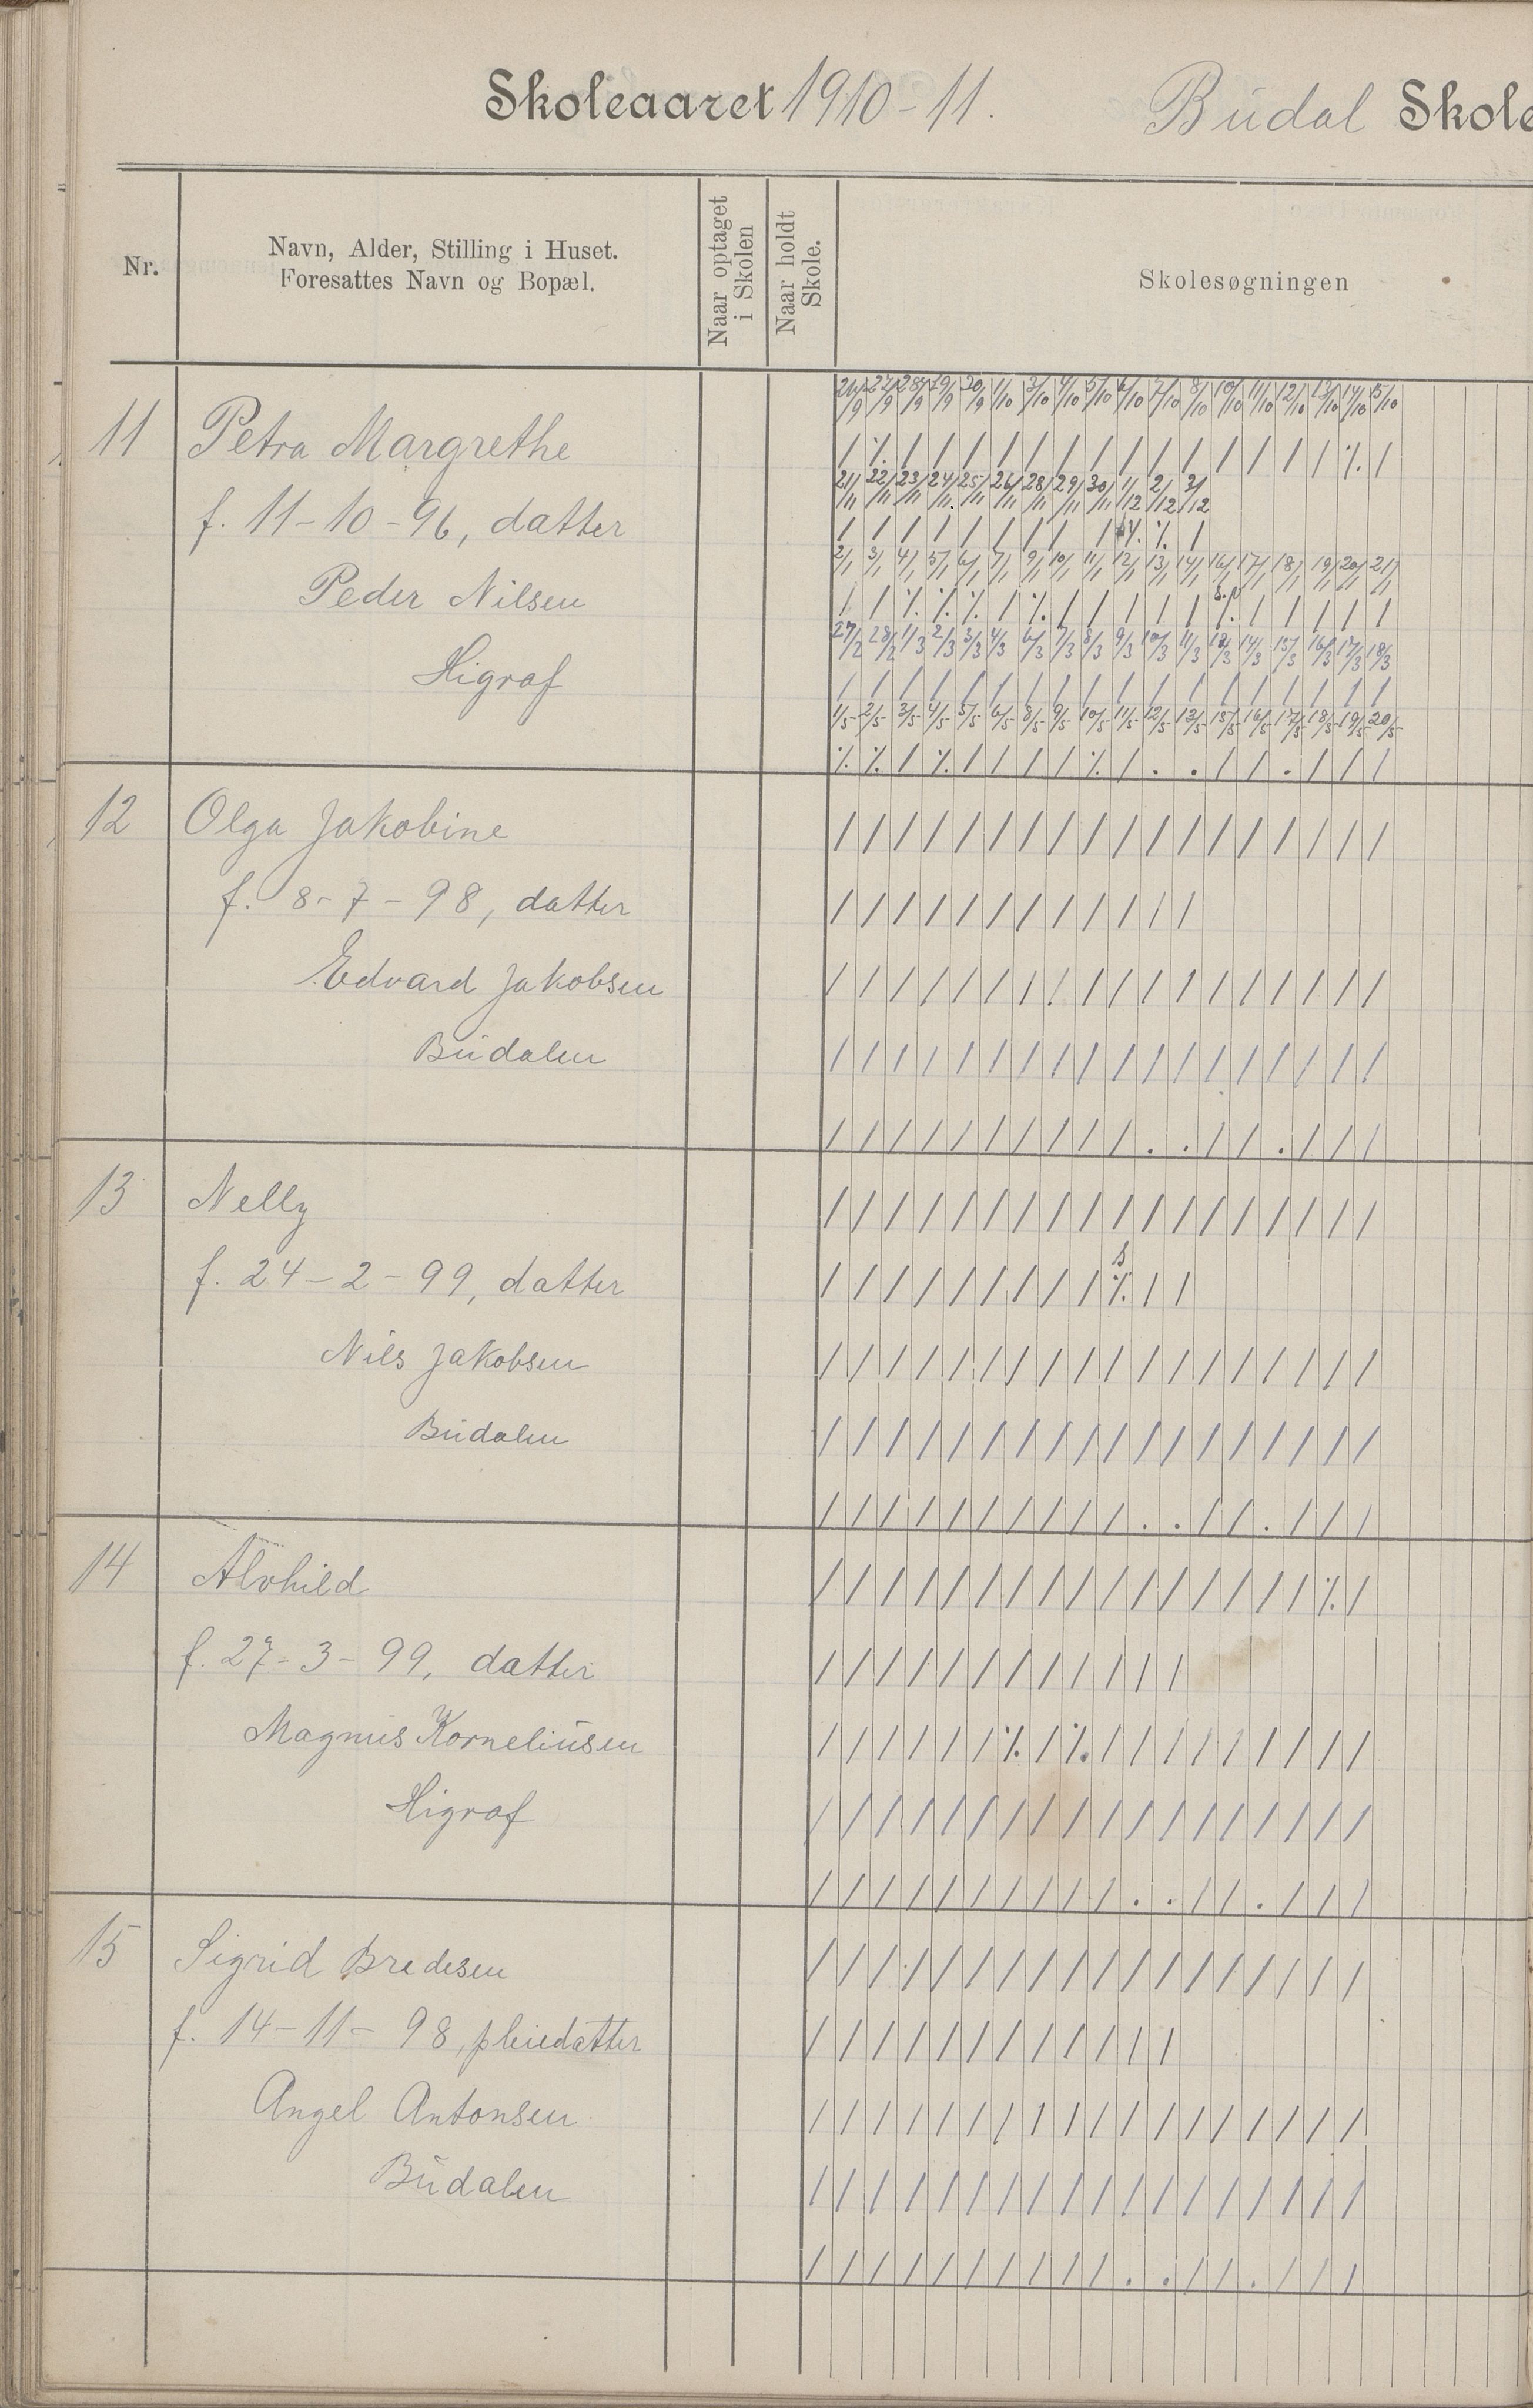 Skoleaaret 1910-11. Budal Skole
Nr.
Navn, Alder, Stilling i Huset.
Foresattes Navn og Bopæl.
Naar optaget
i Skolen
Naar holdt
Skole.
Skolesøgningen
26/9 27/9 28/9 29/9 30/9 1/10 3/10 4/10 5/10 6/10 7/10 8/10 10/10 11/10 12/10 13/10 14/10 15/10
11 Petra Margrethe / % / / / / / / / / / / / / / / % /
21/11 22/11 23/11 24/11 25/11 26/11 28/11 29/11 30/11 1/12 2/12 3/12
f. 11-10-96, datter / / / / / / / / / % % /
2/1 3/1 4/1 5/1 6/1 7/1 9/1 10/1 11/1 12/1 13/1 14/1 16/1 17/1 18/1 19/1 20/1 21/1
Peder Nilsen / / % % % / % / / / / / % / / / / /
27/2 28/2 1/3 2/3 3/3 4/3 6/3 7/3 8/3 9/3 10/3 11/3 13/3 14/3 15/3 16/3 17/3 18/3
Higraf / / / / / / / / / / / / / / / / / /
1/5 2/5 3/5 4/5 5/5 6/5 8/5 9/5 10/5 11/5 12/5 13/5 15/5 16/5 17/5 18/5 19/5 20/5
% % / % / / / / % / . . / / . / / /
12 Olga Jakobine / / / / / / / / / / / / / / / / / /
f. 8-7-98, datter / / / / / / / / / / / /
Edvard Jakobsen / / / / / / / / / / / / / / / / / /
Budalen / / / / / / / / / / / / / / / / / /
/ / / / / / / / / / . . / / . / / /
13 Nelly / / / / / / / / / / / / / / / / / /
s
f. 24-2-99, datter / / / / / / / / / % / /
Nils Jakobsen / / / / / / / / / / / / / / / / / /
Budalen / / / / / / / / / / / / / / / / / /
/ / / / / / / / / / . . / / . / / /
14 Alvhild / / / / / / / / / / / / / / / / % /
f. 27-3-99, datter / / / / / / / / / / / /
Magnus Korneliusen / / / / / / % / % / / / / / / / / /
Higraf / / / / / / / / / / / / / / / / / /
/ / / / / / / / / / . . / / . / / /
15 Sigrid Bredesen / / / / / / / / / / / / / / / / / /
f. 14-11-98, pleiedatter / / / / / / / / / / / /
Angel Antonsen / / / / / / / / / / / / / / / / / /
Budalen / / / / / / / / / / / / / / / / / /
/ / / / / / / / / / . . / / . / / /